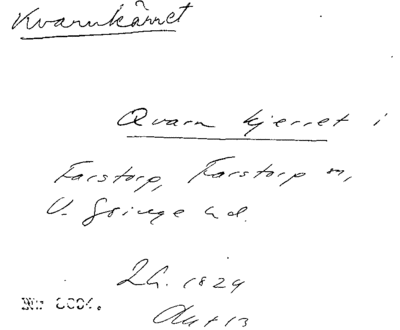 Kvarnkärret
Qvarn kjerret i
Farstorp, Farstorp sn,
V. Göinge hd.
LA. 1829
Akt 13